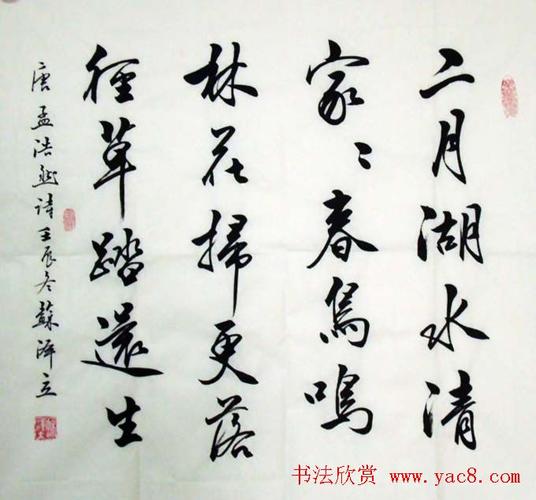 二月湖水清
家〻春鳥鳴
林花掃更落
徑草踏還生
唐孟浩然诗壬辰冬蘇泽立
书法欣赏 www.yac8.com